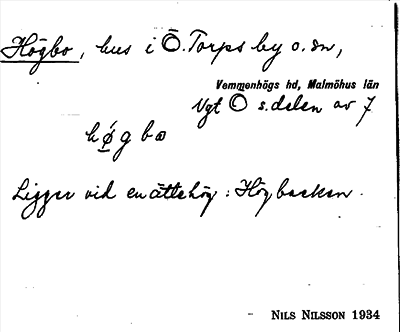 Högbo, hus i Ö. Torps by o. sn,
Vemmenhögs hd, Malmöhus län
Vgt Ö s. delen av 7
hǿgbo
Ligger vid en ättehög: Högbacken.
- NILS NILSSON 1934